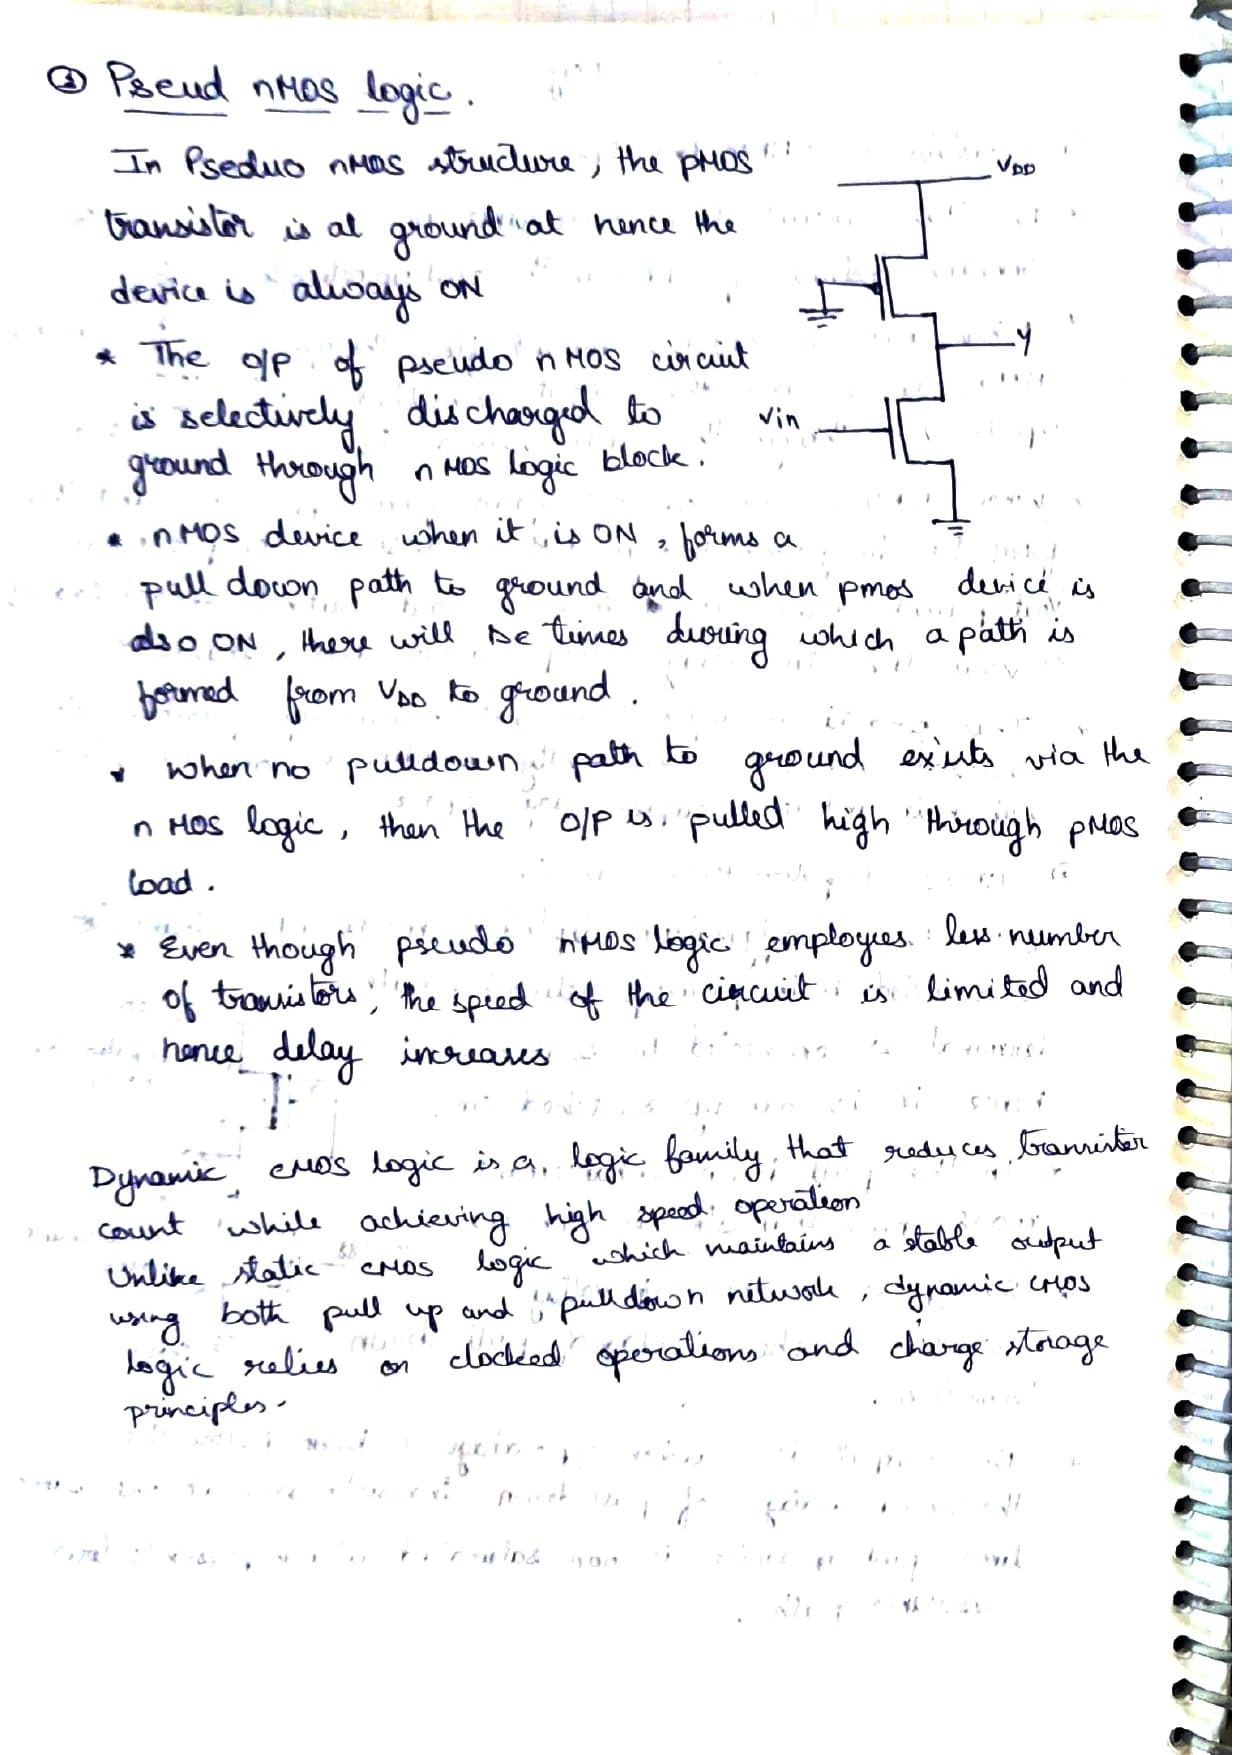 ③ Pseud nMOS logic.
In Pseduo nMOS structure, the pMOS
transistor is at ground at hence the
device is always ON
VDD
Y
Vin
* The o/p of pseudo nMOS circuit
is selectively discharged to
ground through nMOS logic block.
* nMOS device when it is ON, forms a
pull down path to ground and when pmos device is
also ON, there will be times during which a path is
formed from VDD to ground.
* when no pulldown path to ground exists via the
nMOS logic, then the O/P is pulled high through pMOS
load.
* Even though pseudo nMOS logic employes less number
of transistors, the speed of the circuit is limited and
hence delay increases
Dynamic CMOS logic is a logic family that reduces transistor
count while achieving high speed operation
Unlike static CMOS logic which maintains a stable output
using both pull up and pulldown network, dynamic CMOS
logic relies on clocked operations and charge storage
principles.